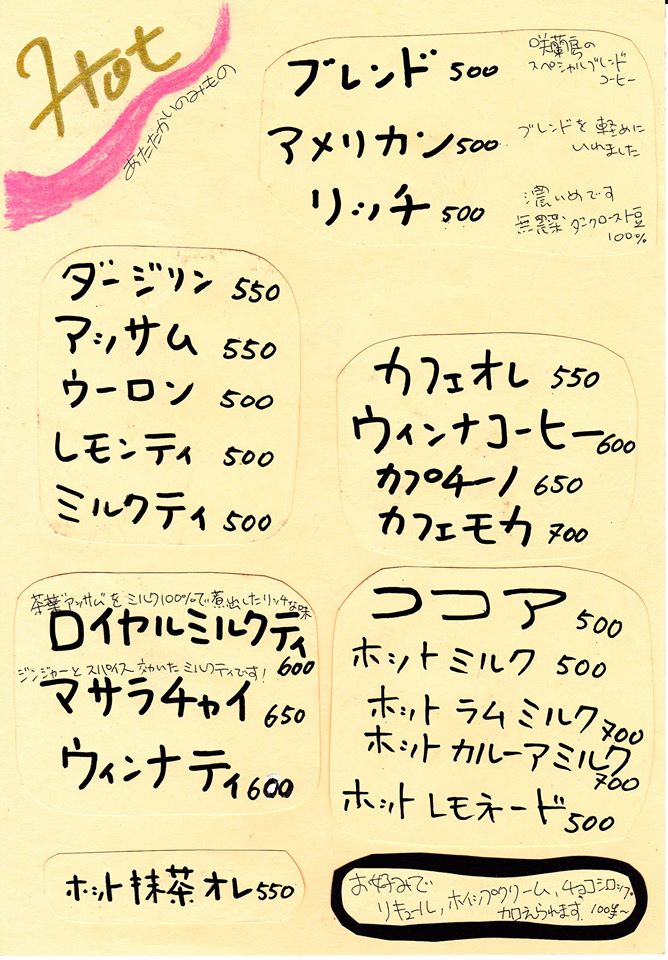 Hot
あたたかいのみもの
ブレンド 500
咲蘭房の
スペシャルブレンド
コーヒー
アメリカン 500
ブレンドを軽めに
いれました
リッチ 500
濃いめです
無農薬 ダークロースト豆
100%
ダージリン 550
アッサム 550
ウーロン 500
レモンティ 500
ミルクティ 500
カフェオレ 550
ウィンナコーヒー 600
カプチーノ 650
カフェモカ 700
茶葉"アッサム"をミルク100%で煮出したリッチな味
ロイヤルミルクティ
600
ジンジャーとスパイス効いたミルクティです!
マサラチャイ 650
ウィンナティ 600
ココア 500
ホットミルク 500
ホットラムミルク 700
ホットカルーアミルク
700
ホットレモネード 500
ホット抹茶オレ 550
お好みで
リキュール,ホイップクリーム,チョコシロップ
加えられます 100¥~